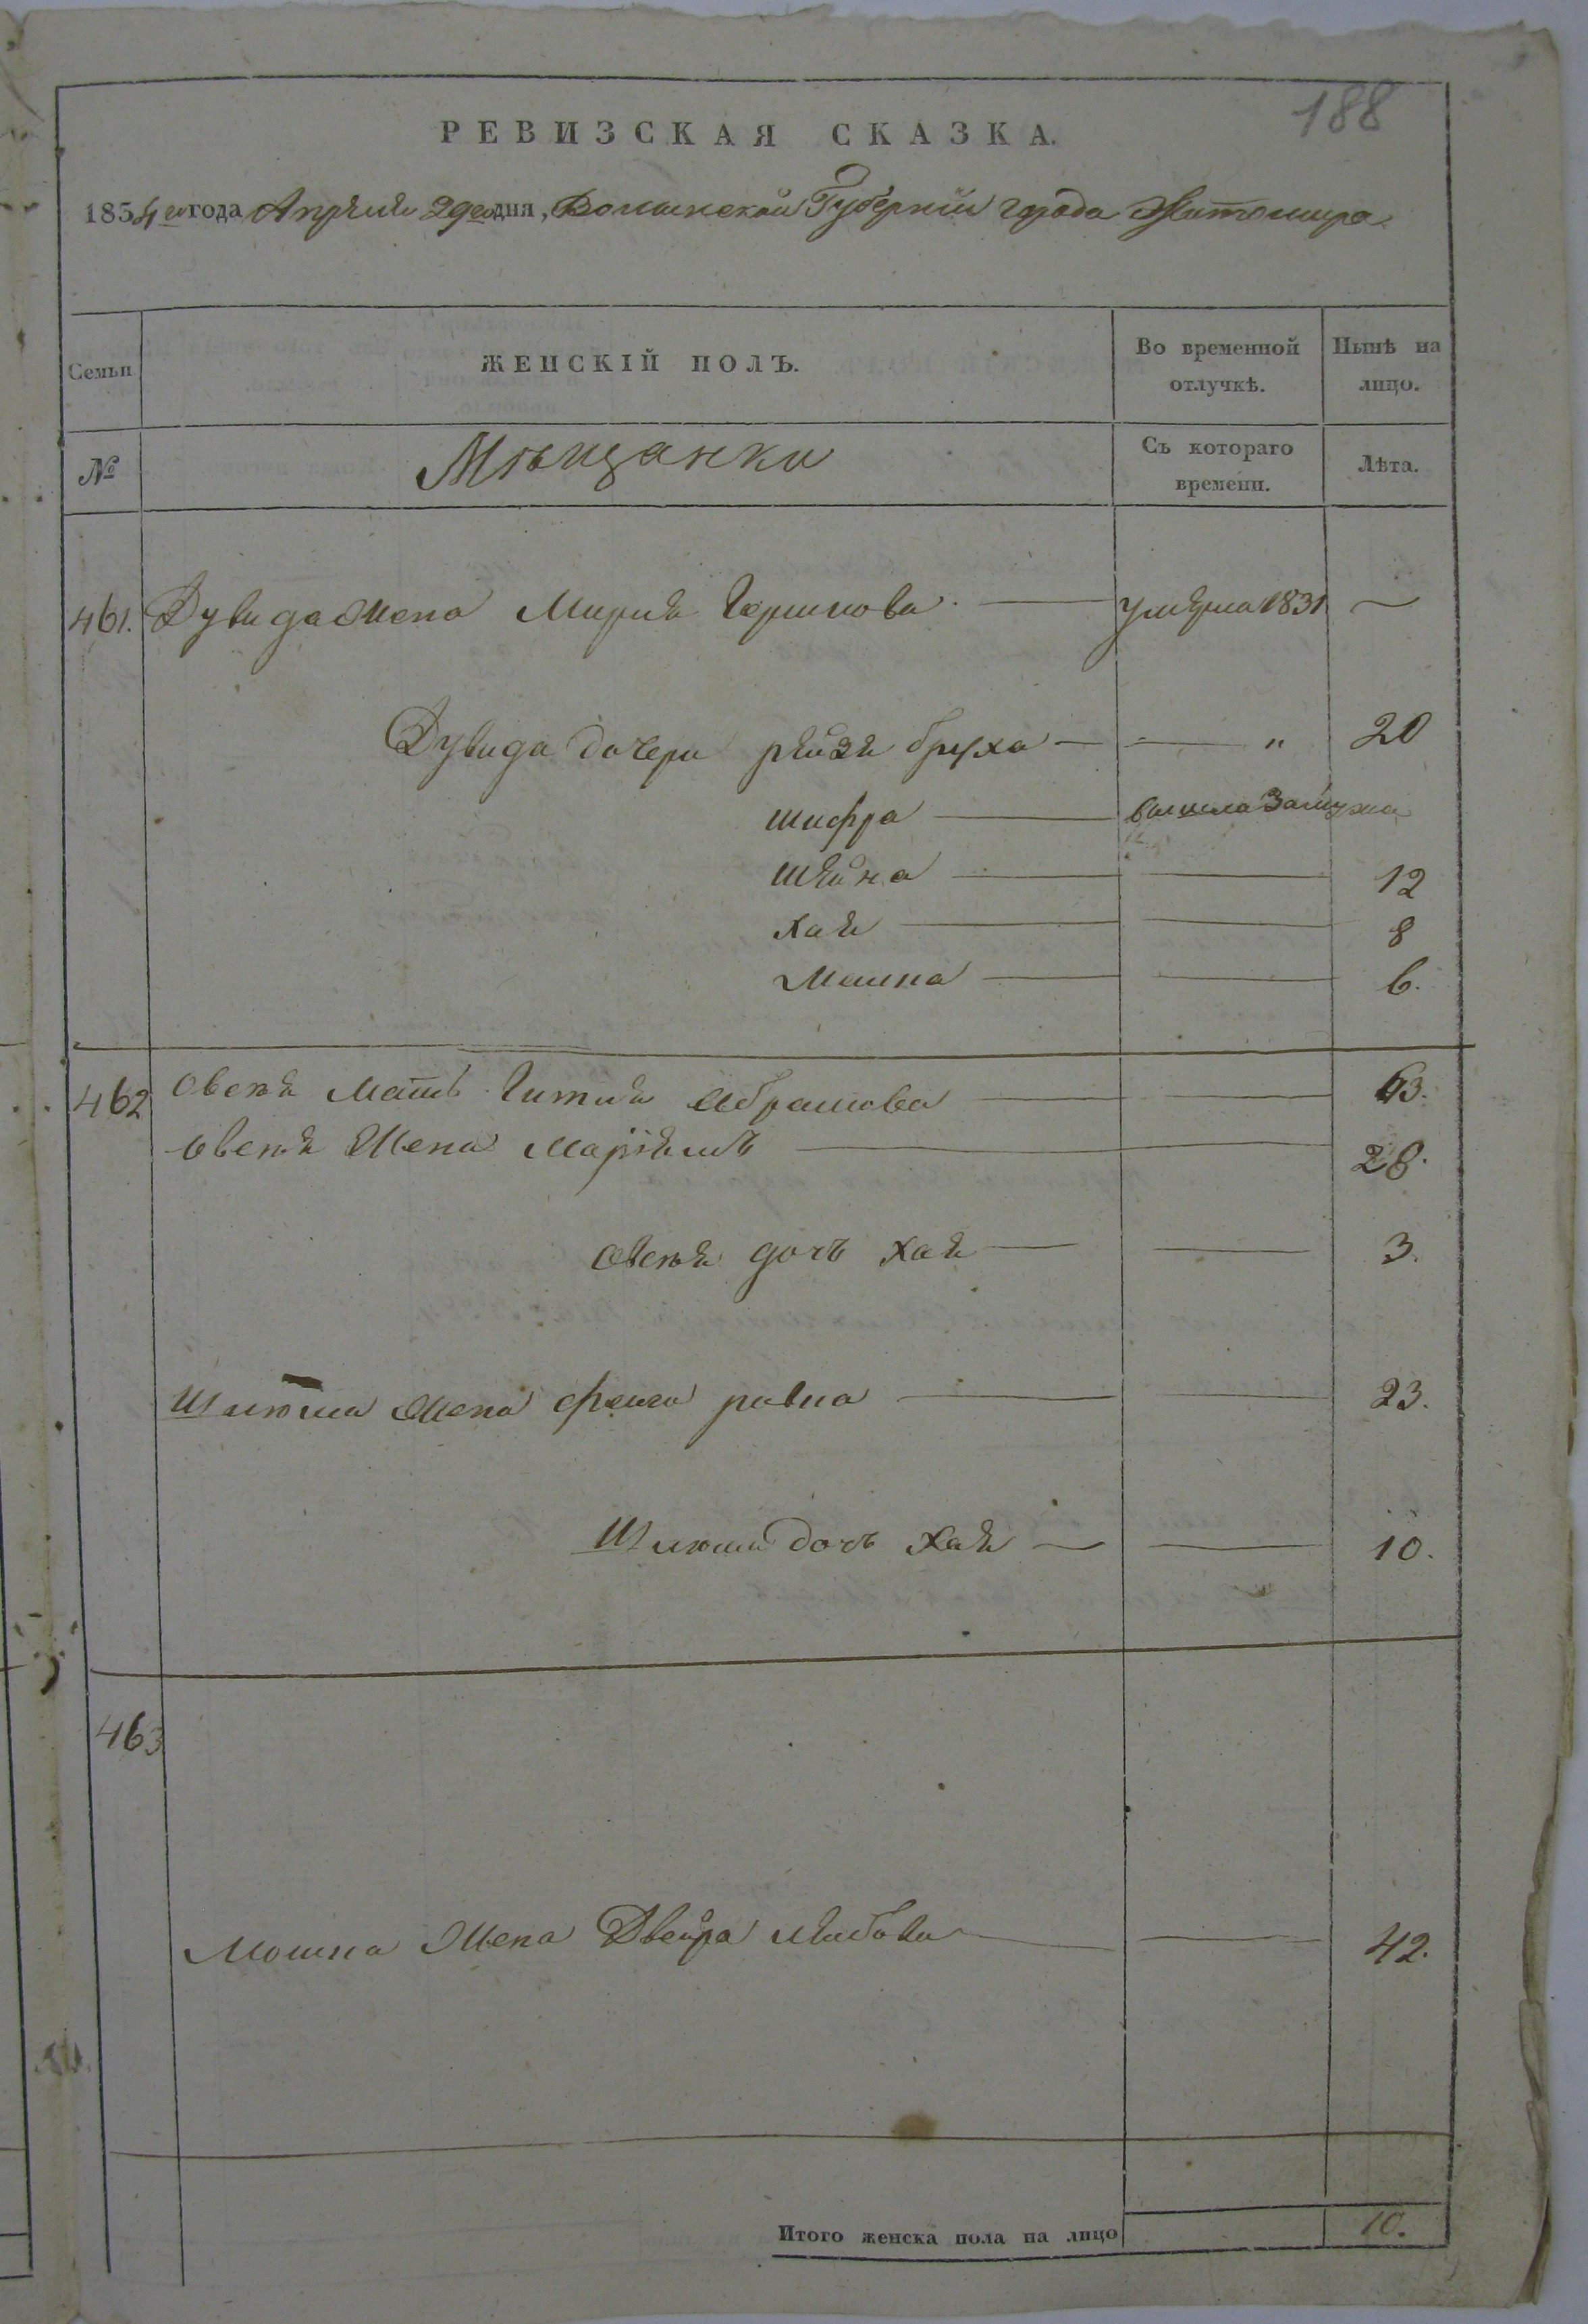 188
РЕВИЗСКАЯ СКАЗКА.
1854го года Апреля 29го дня, Волынской Губернии города Житомира
Семьи ЖЕНСКІЙ ПОЛЪ. Во временной отлучкѣ. Нынѣ на лицо.
№ Мѣщанки Съ котораго времени. Лѣта.
461. Дувида Жена Мирля Гершкова — умерла 1831 —
Дувида дочери рейзя бруха — — „ 20
шифра — вышла Замужъ
шейна — — 12
хая — — 8
Машка — — 6.
462 Овсея Мать Гитля Абрамова — — 63.
Овсея Жена Маріямъ — 28.
Овсея дочь хая — — 3.
Шлиома Жена фейга ривка — — 23.
Шлиома дочь хая — — 10.
463
Мошка Жена Двейра лейбова — — 42.
Итого женска пола на лицо 10.